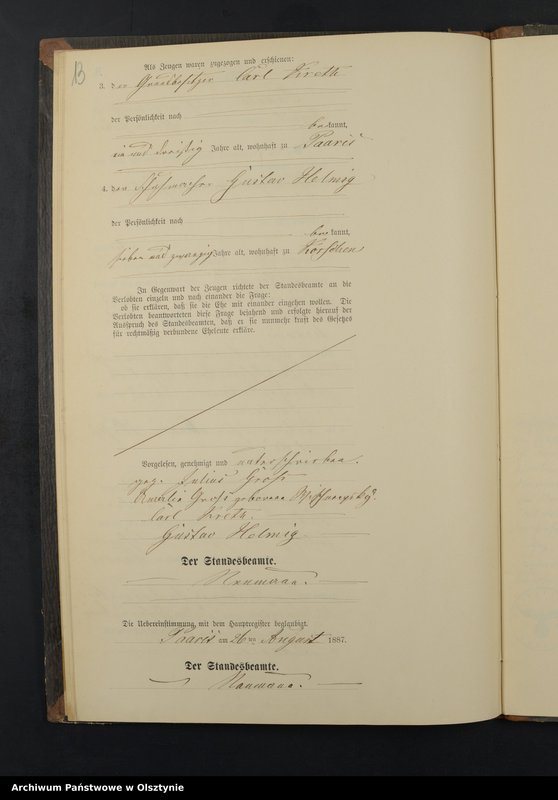 13
Als Zeugen waren zugezogen und erschienen:
3. der Grundbesitzer Carl Kreth
der Persönlichkeit nach
be kannt,
ein und dreißig Jahre alt, wohnhaft zu Paaris
4. der Schuhmacher Gustav Helmig
der Persönlichkeit nach
be kannt,
sieben und zwanzig Jahre alt, wohnhaft zu Korschen
In Gegenwart der Zeugen richtete der Standesbeamte an die
Verlobten einzeln und nach einander die Frage:
ob sie erklären, daß sie die Ehe mit einander eingehen wollen. Die
Verlobten beantworteten diese Frage bejahend und erfolgte hierauf der
Ausspruch des Standesbeamten, daß er sie nunmehr kraft des Gesetzes
für rechtmäßig verbundene Eheleute erkläre.
Vorgelesen, genehmigt und unterschrieben.
gez. Julius Groß
Amalie Groß geborene
Carl Kreth.
Gustav Helmig
Der Standesbeamte.
Naumann.
Die Uebereinstimmung mit dem Hauptregister beglaubigt.
Paaris am 26ten August 1887.
Der Standesbeamte.
Naumann.
Archiwum Państwowe w Olsztynie